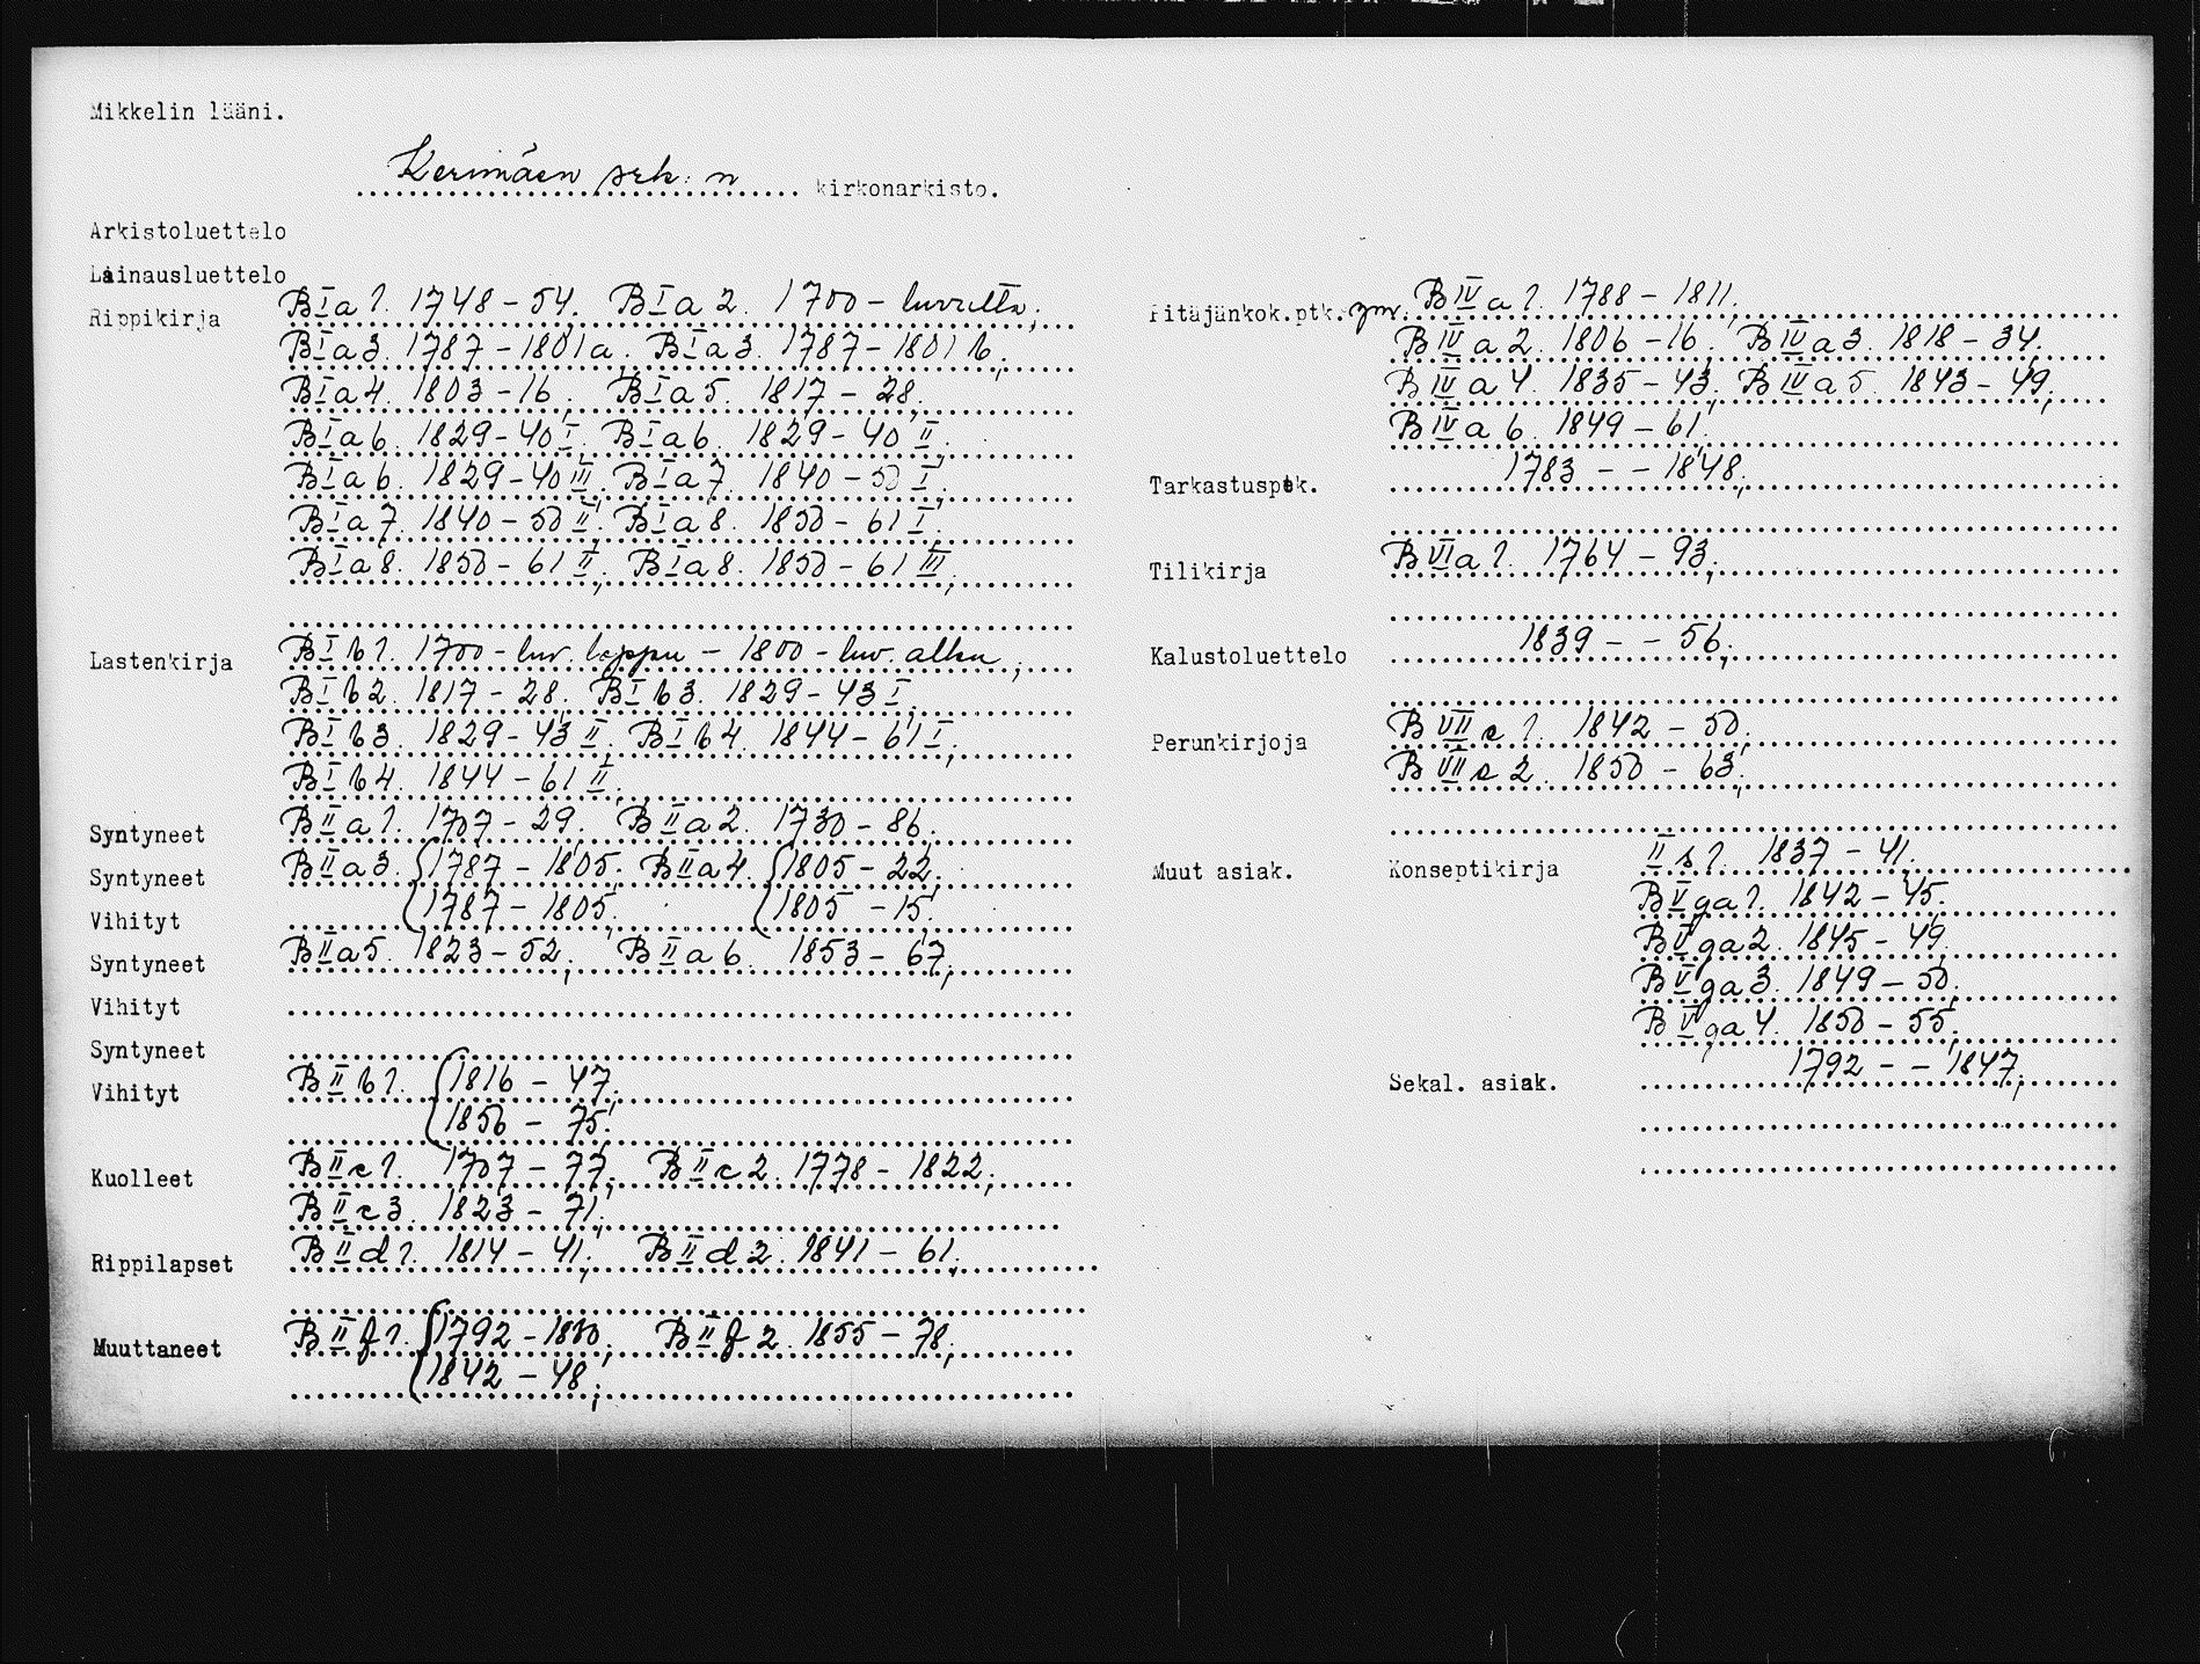 Mikkelin lääni.
Kerimäen srk:n kirkonarkisto.
Arkistoluettelo
Lainausluettelo
Rippikirja BIa1. 1748-54. BIa2. 1700-luvulta;
BIa3. 1787-1801a. BIa3. 1787-1801b;
BIa4. 1803-16; BIa5. 1817-28;
BIa6. 1829-40 I; BIa6. 1829-40 II;
BIa6. 1829-40 III; BIa7. 1840-50 I;
BIa7. 1840-50 II; BIa8. 1850-61 I;
BIa8. 1850-61 II; BIa8. 1850-61 III;
Lastenkirja BIb1. 1700-luv. loppu - 1800-luv. alku;
BIb2. 1817-28; BIb3. 1829-43 I;
BIb3. 1829-43 II; BIb4. 1844-61 I;
BIb4. 1844-61 II;
Syntyneet BIIa1. 1707-29; BIIa2. 1730-86;
Syntyneet BIIa3. {1787-1805; BIIa4. {1805-22;
Vihityt {1787-1805; {1805-15;
Syntyneet BIIa5. 1823-52; BIIa6. 1853-67;
Vihityt
Syntyneet
Vihityt BIIb1. {1816-47;
{1850-75;
Kuolleet BIIc1. 1707-77; BIIc2. 1778-1822;
BIIc3. 1823-71;
Rippilapset BIId1. 1814-41; BIId2. 1841-61;
Muuttaneet BIIf1. {1792-1830; BIIf2. 1855-78;
{1842-48;
Pitäjänkok.ptk. ym. BIVa1. 1788-1811;
BIVa2. 1806-16; BIVa3. 1818-34;
BIVa4. 1835-43; BIVa5. 1843-49;
BIVa6. 1849-61;
Tarkastusptk. 1783--1848;
Tilikirja BVIa1. 1764-93;
Kalustoluettelo 1839--56;
Perunkirjoja BVIIc1. 1842-50;
BVIIc2. 1850-63;
Muut asiak. Konseptikirja II s1. 1837-41;
BVga1. 1842-45;
BVga2. 1845-49;
BVga3. 1849-50;
BVga4. 1850-55;
Sekal. asiak. 1792--1847;